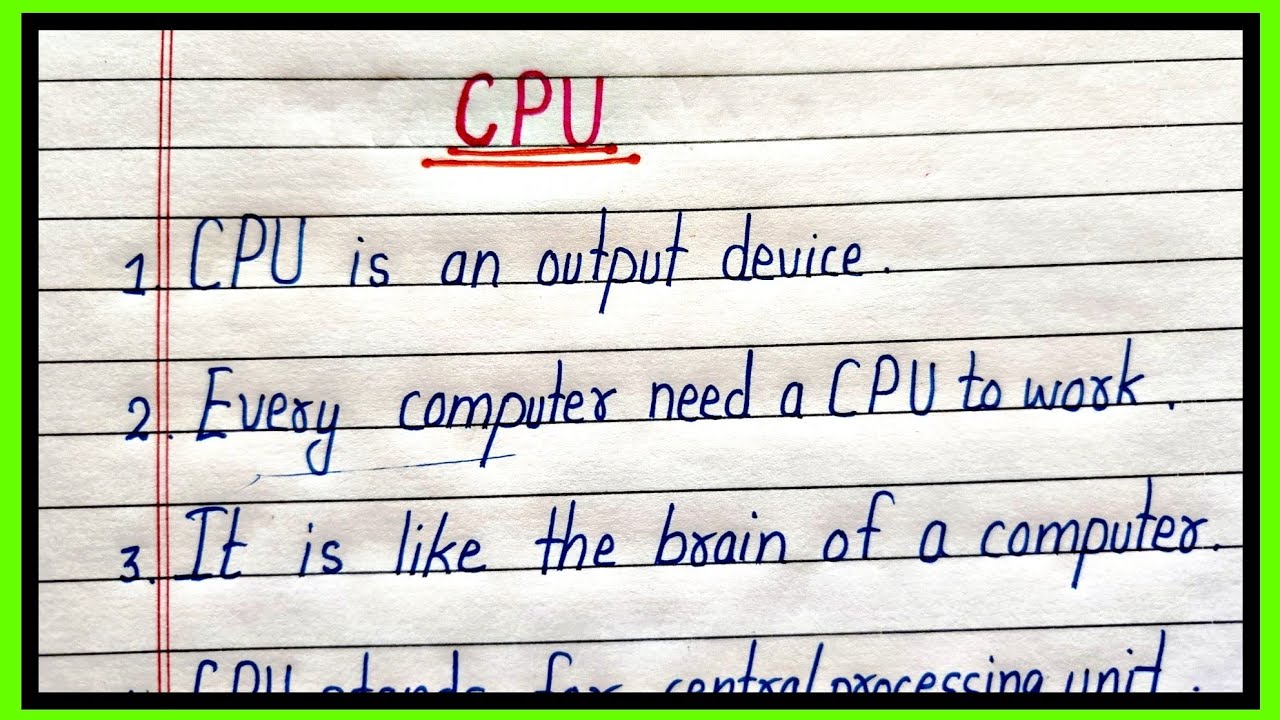 CPU
1. CPU is an output device.
2. Every computer need a CPU to work.
3. It is like the brain of a computer.
CPU stands for central processing unit.